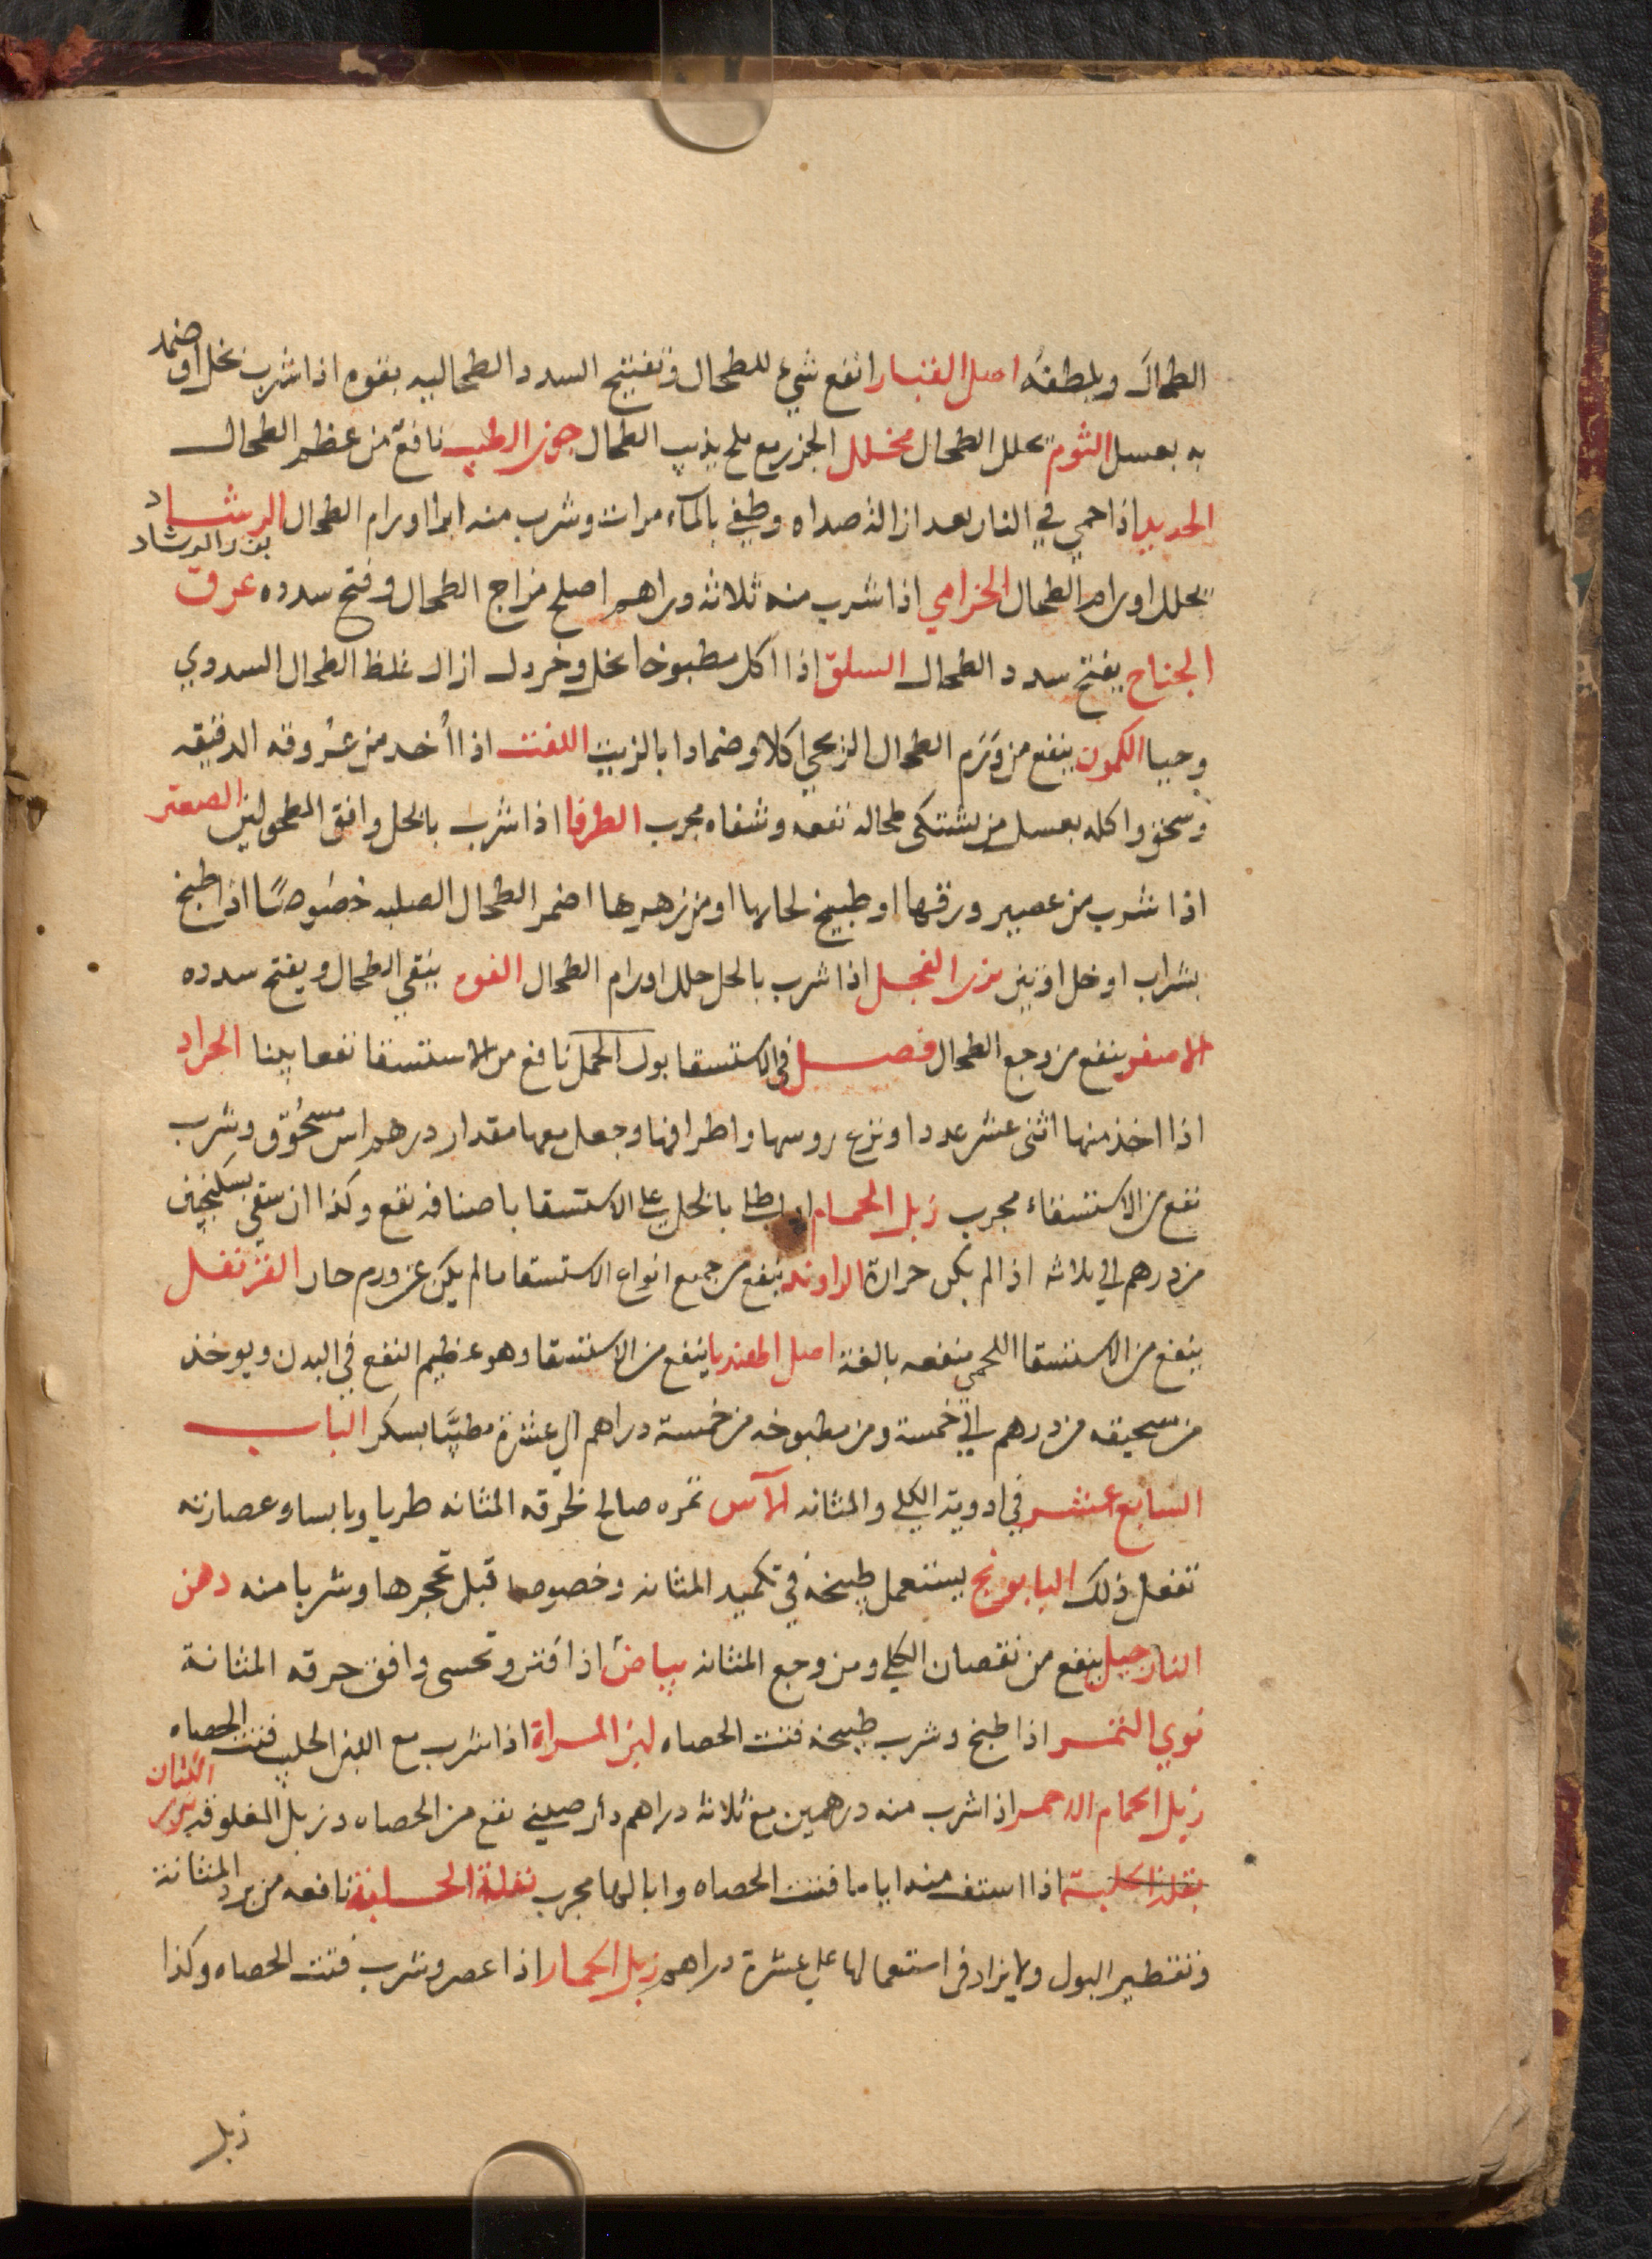 الطحال ويلطفه اصل القبار انفع شيء للطحال وتفتيح السدد الطحاليه بقوه اذا شرب بخل او ضمد
به بعسل الثوم يحلل الطحال مخلل الجزر مع ملح يذيب الطحال جوز الطيب نافع من عظم الطحال
الحديد اذا حمي في النار بعد ازالة صداه وطفي بالماء مرات وشرب منه ابرا اورام الطحال الرشاد
بزر الرشاد
يحلل اورام الطحال الخزامي اذا شرب منه ثلاثه دراهم اصلح مزاج الطحال وفتح سدده عرق
الجناح يفتح سدد الطحال السلق اذا اكل مطبوخا بخل وخردل ازال غلظ الطحال السددي
وحيا الكمون ينفع من ورم الطحال الريحي اكلا وضمادا بالزيت اللفت اذا أخد من عروقه الدقيقه
وسحق واكله بعسل من يشتكى طحاله نفعه وشفاه مجرب الطرفا اذا شرب بالخل وافق المطحولين الصعتر
اذا شرب من عصير ورقها او طبيخ لحايها او من زهرها اضمر الطحال الصلبه خصوصًا اذا طبخ
بشراب او خل اوتين بزر الفجل اذا شرب بالخل حلل اورام الطحال الفوه ينقي الطحال ويفتح سدده
الاصفر ينفع من وجع الطحال فصل في الاستسقا بول الجمل نافع من الاستسقا نفعا بينا الجراد
اذا اخذ منها اثنى عشر عددا ونزع روسها واطرافها وجعل معها مقدار درهم اس مسحوق وشرب
نفع من الاستسقاء مجرب زبل الحمام اذا طلا بالخل على الاستسقا باصنافه نفع وكذا ان سقي بسكنجبين
من درهم الي ثلاثه اذا لم يكن حرارة الراوند ينفع من جميع انواع الاستسقا مالم يكن عن ورم حار القرنفل
ينفع من الاستسقا اللحمي منفعه بالغة اصل الهندبا ينفع من الاستسقا وهو عظيم النفع في البدن ويوخذ
من سحيقه من درهم الي خمسة ومن مطبوخه من خمسة دراهم الي عشرة مطيبًا بسكر الباب
السابع عشر في ادوية الكلي والمثانه الآس ثمره صالح لحرقه المثانه طريا ويابسا وعصارته
تفعل ذلك البابونج يستعمل طبيخه في تكميد المثانه وخصوصا قبل تحجرها وشربا منه دهن
النارجيل ينفع من نقصان الكلي ومن وجع المثانه بياض اذا فتر وتحسى وافق حرقه المثانة
نوي التمر اذا طبخ وشرب طبيخه فتت الحصاه لبن المراة اذا شرب مع اللبن الحليب فتت الحصاه
زبل الحمام الاحمر اذا شرب منه درهمين مع ثلاثة دراهم دار صيني نفع من الحصاه وزبل المعلوفه بزر الكتان
بقلة اذا استف منه اياما فتت الحصاه وابالها مجرب نافعه من برد المثانة
وتقطير البول ولا يزاد في استعمالها على عشرة دراهم زبل الحمار اذا عصر وشرب فتت الحصاه وكذا
زبل